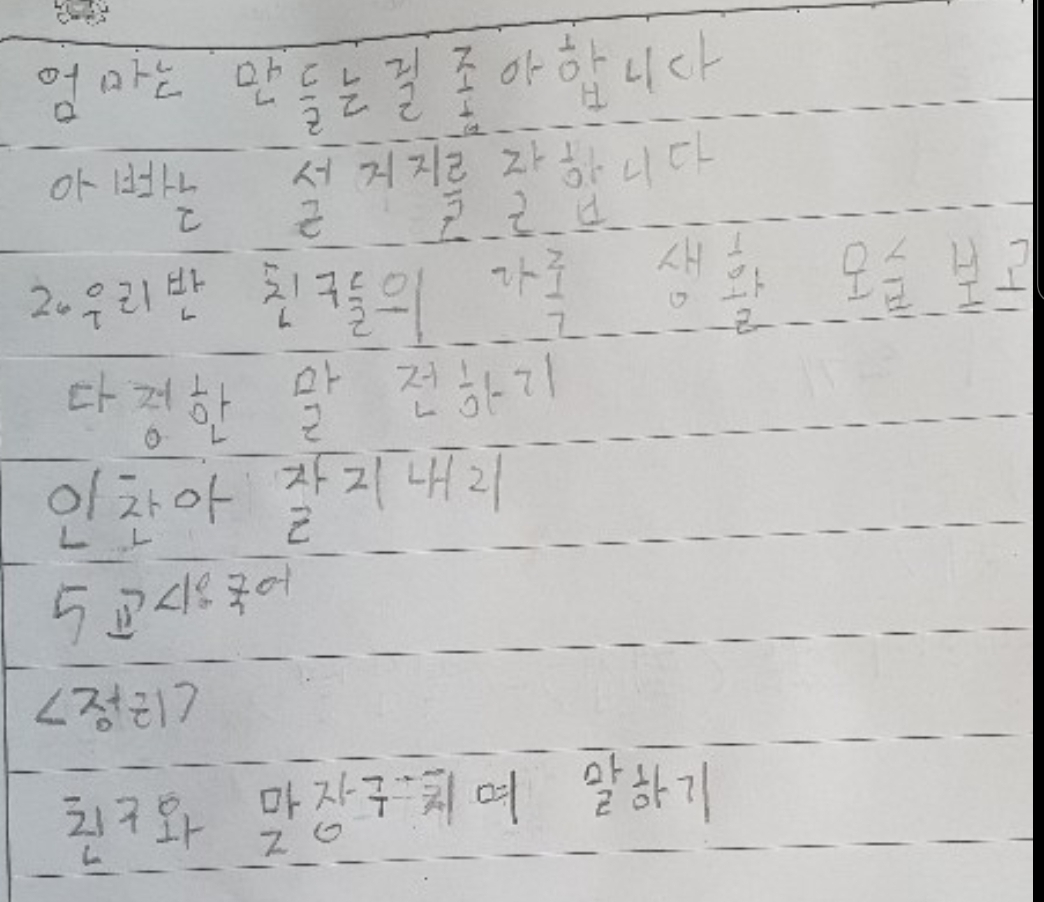 엄마는 만들는걸 좋아합니다
아빠는 설거지를 잘합니다
2. 우리반 친구들의 가족 생활 모습 보고
다정한 말 전하기
인찬아 잘지내리
5교시: 국어
<정리>
친구와 맞장구치며 말하기